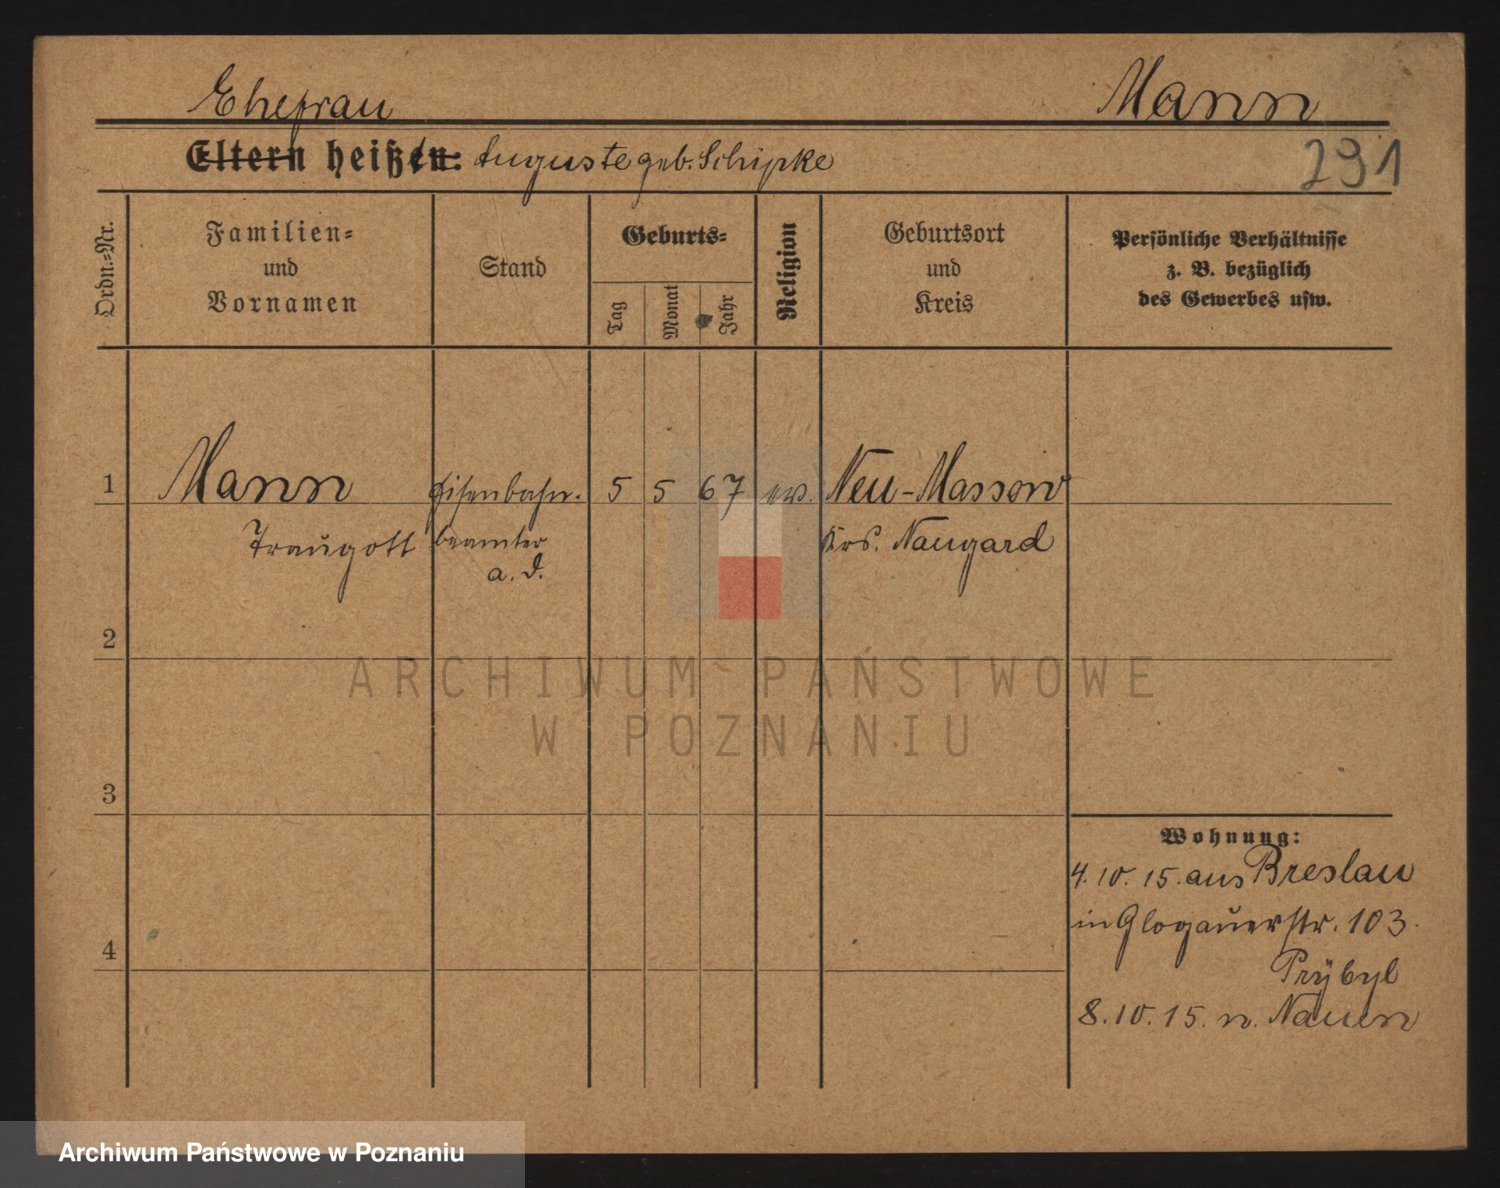 Ehefrau
Mann
Eltern heißen: Auguste geb. Schipke
291
Ordn.=Nr.
Familien=
und
Vornamen
Stand
Geburts=
Tag
Monat
Jahr
Religion
Geburtsort
und
Kreis
Persönliche Verhältnisse
z. B. bezüglich
des Gewerbes usw.
1
Mann
Eisenbahn-
5
5
67
ev.
Neu-Massow
Traugott
beamter
Krs. Naugard
a. D.
2
ARCHIWUM PAŃSTWOWE
W POZNANIU
3
Wohnung:
4. 10. 15. aus Breslau
in Glogauerstr. 103.
4
Prÿbyl
8. 10. 15. n. Nauen
Archiwum Państwowe w Poznaniu